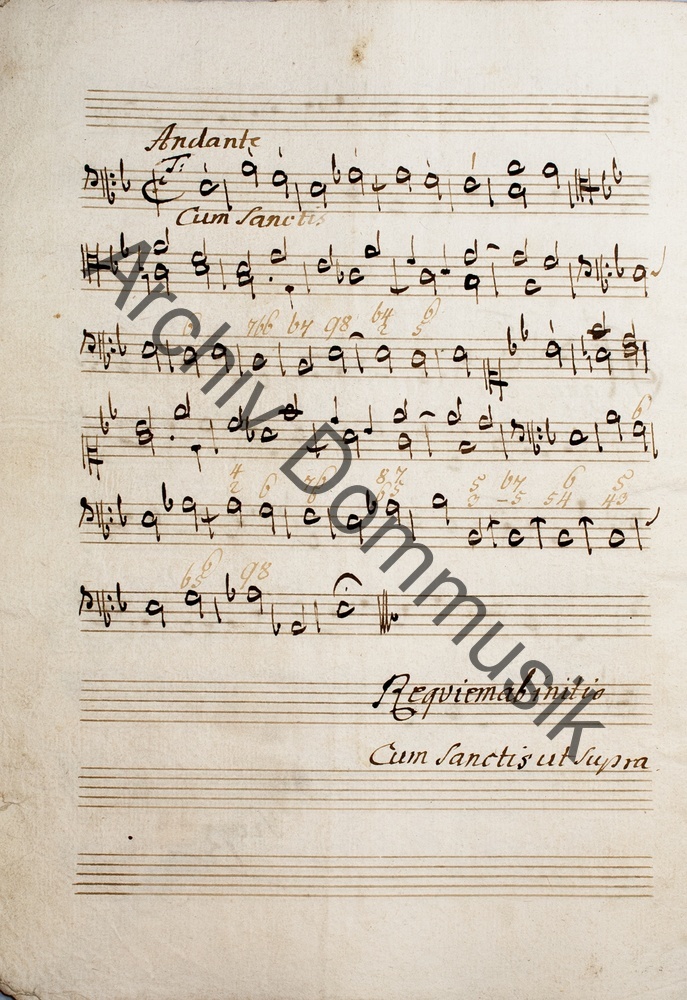 Andante
T:
Cum Sanctis
6 7 6 6 b7 9 8 b4 2 6 5
6
4 2 6 7 6 8 7 6 5 5 3 b7 -5 6 5 4 5 4 3
b5 6 9 8
Requiem ab initio
Cum Sanctis ut Supra.
Archiv Dommusik